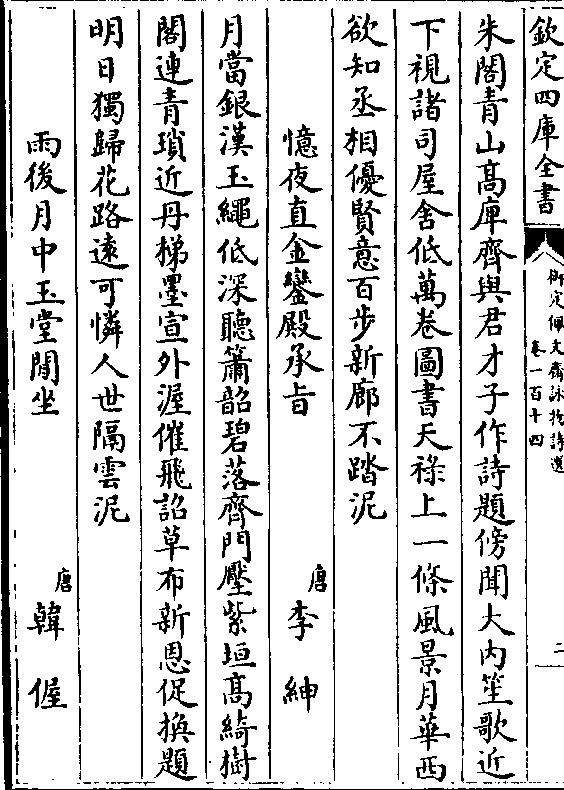 欽定四庫全書
御定佩文齋詠物詩選
卷一百十四
二
朱閣青山髙庫齊與君才子作詩題傍聞大内笙歌近
下視諸司屋舍低萬卷圖書天祿上一條風景月華西
欲知丞相優賢意百步新廊不踏泥
憶夜直金鑾殿承旨
唐李紳
月當銀漢玉繩低深聽簫韶碧落齊門壓紫垣髙綺樹
閣連青瑣近丹梯墨宣外渥催飛詔草布新恩促換題
明日獨歸花路遠可憐人世隔雲泥
雨後月中玉堂閒坐
唐韓偓